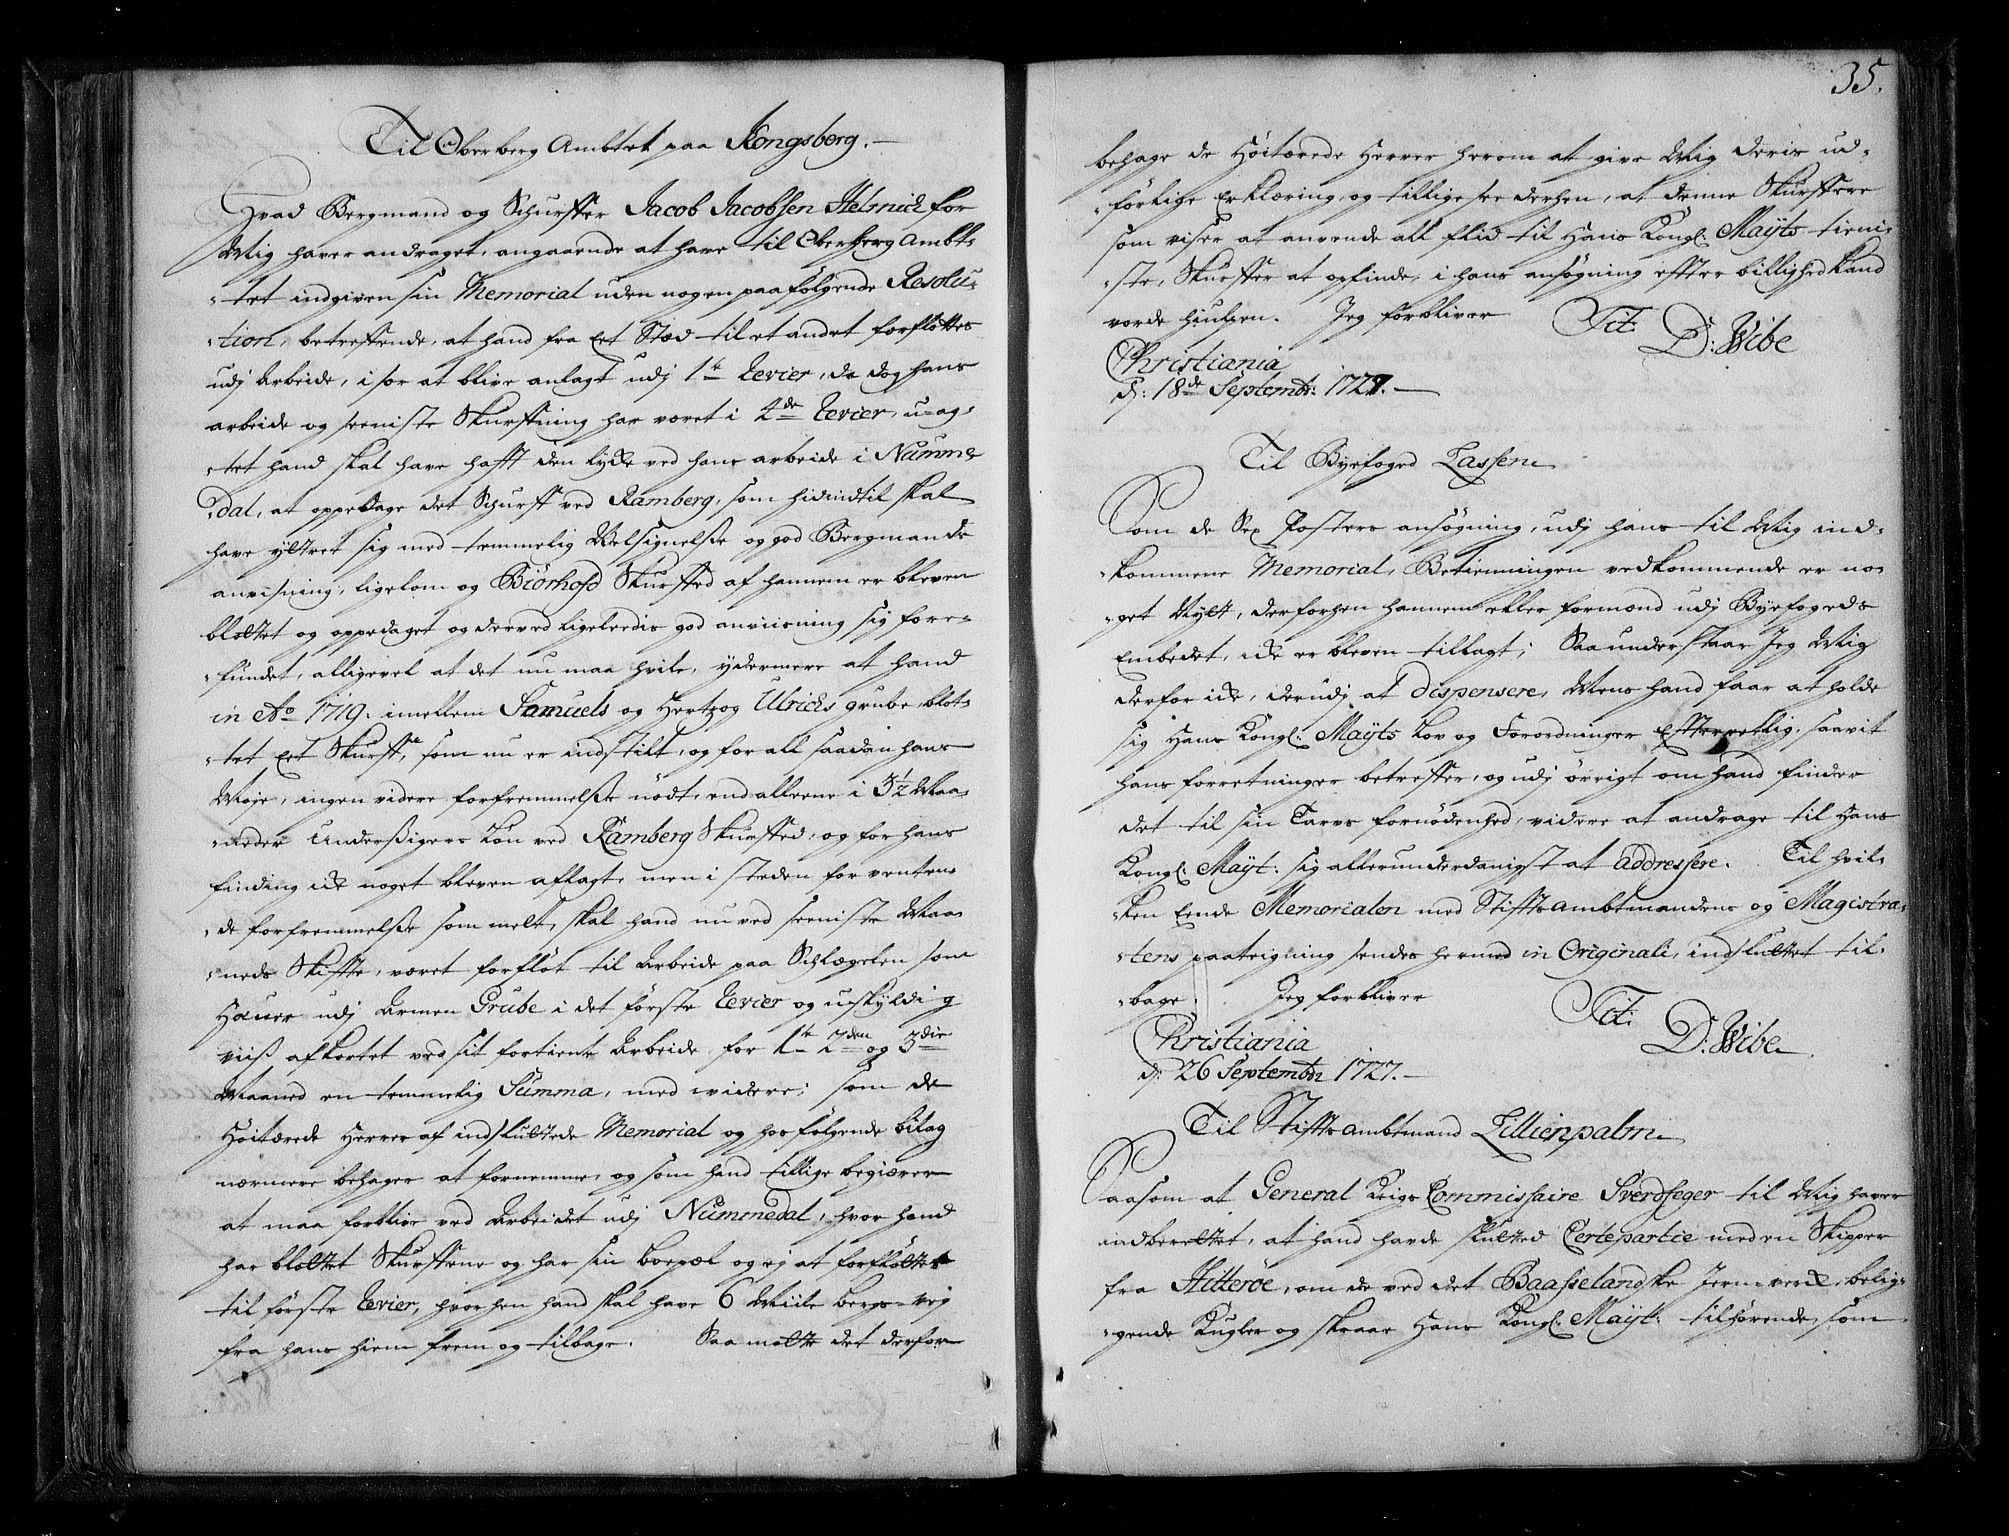 Til Oberberg Ambtet paa Kongsberg.
Hvad Bergmand og Schurffer Jacob Jacobsen Helmich for
Mig haver andraget, angaaende at have til Oberberg Ambt-
-tet indgiven sin Memorial uden nogen paafølgende Resolu-
-tion, betreffende, at hand fra Eet Sted til et andet forfløttes
udj Arbeide, i sær at blive anlagt udj 1te Revier, da dog hans
arbeide og seeniste Skurffning har været i 4de Revier, u-ag-
-tet hand skal have hafft den lykke ved hans arbeide i Numme
-dal, at oppedage det Schurff ved Ramberg, som hidindtil skal
have yttret sig med temmelig Velsignelsße og god Bergmands
anvisning, ligesom og Biørhold Skurffed af hannem er bleven
bløttet og oppedaget og derved ligeleedis god anviisning sig fore-
-fundet, alligevel at det nu maa hvile, ydermere at hand
in Ao 1719. imellem Samuels og Hertzog Ulrichs grube, bløt-
-tet Eet Skurff, som nu er indstilt, og for all saadan hans
Møje, ingen videre forfremmelsße nødt, end alleene i 3½ Maa-
-neder Undersßigers Løn ved Ramberg Skurffed, og for hans
finding icke noget bleven aflagt, men i steden for venten-
-de forfremmelsße som melt, skal hand nu ved seeniste Maa-
-neds Skiffte, været forfløt til Arbeide paa Schlægelen som
Hauer udj Armen Grube i det første Revier og uskyldig
viiß afkortet ved sit fortiente Arbeide for 1te 2den og 3die
Maaned en temmelig Summa, med widere; som de
Høitærede Herrer af indsluttede Memorial og hosfølgende bilag
nærmere behager at fornemme, og som hand tillige begiærer
at maa forblive ved Arbeidet udj Nummedal, hvor hand
har bløttet Skurffene og har sin boepæl og ej at forfløttes
til første Revier, hvorhen hand skal have 6 Miile bergs-vej
fra hans hiem frem og tilbage. Saa maatte det derfor
35.
behage de Høitærede Herrer herom at give Mig deris ud-
-førlige Erklæring, og tillige see derhen, at denne Skurffere
som viser at anvende all flid til Hans Kongl: Mayts tieni-
-ste, Skurffer at opfinde, i hans ansøgning effter billighed kand
vorde hiulpen. Jeg forbliver Tit:
D: Wibe
Christiania
d: 18de Septembr: 1727.
Til Byefoged Lassen
Som de Sex Posters ansøgning, udj hans til Mig ind-
-kommene Memorial, Betienningen vedkommende er no-
-get Nytt, derforhen hannem eller formænd udj Byefogeds
Embedet, icke er bleven tillagt; Saa understaar Jeg Mig
derfor icke, derudj at dispensere, Mens hand faar at holde
sig Hans Kongl: Mayts Lov og Forordninger Efterrettlig, saavit
hans forretninger betreffer, og udj øvrigt om hand finder
det til sin Tarvs fornødenhed, videre at andrage til Hans
Kongl: Mayt: sig allerunderdanigst at addressere. Til hvil-
-ken Eende Memorialen med Stiftsambtmandens og Magistra-
-tens paateigning sendes hermed in Originali, indsluttet til-
-bage. Jeg forbliver Tit:
D: Wibe
Christiania
d: 26 Septembr 1727.
Til Stiftsambtmand Lillienpalm
Saasom at General Krigs Commissaire Sverdfeger til Mig haver
indberettet, at hand havde slutted Certepartie med en Skipper
fra Hitterøe, om de ved det Baasselandske Jernverck, belig-
-gende Kugler og skraae Hans Kongl: Mayt: tilhørende, som